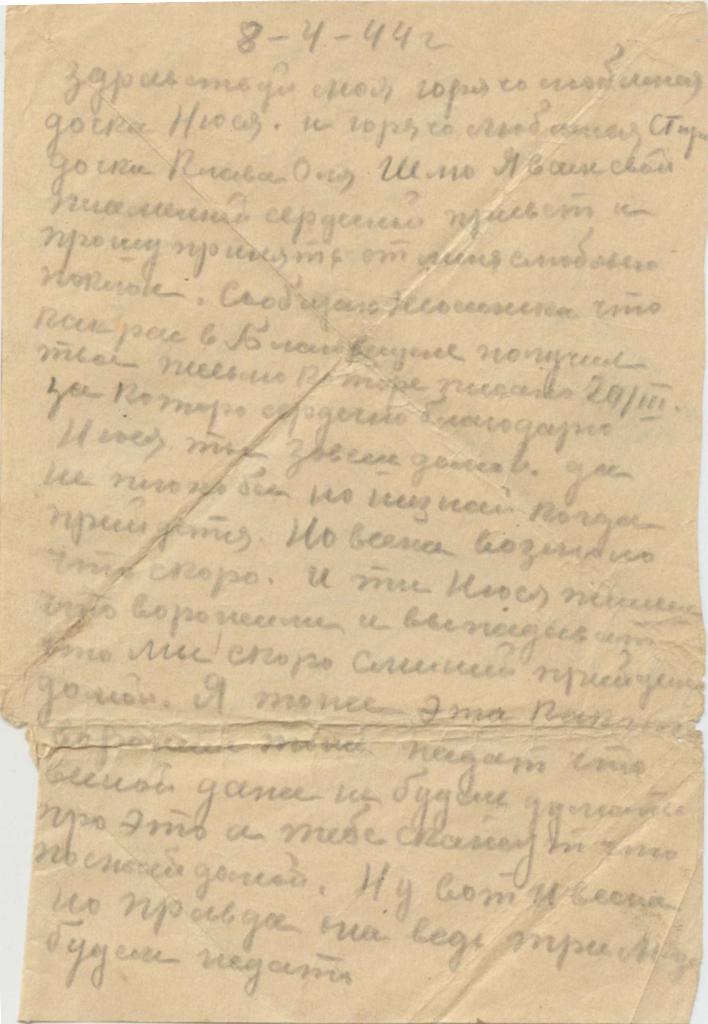 8-4-44 г
Здравствуй моя горячо любимая
дочка Нюся. и горячо любимая
дочка Клава Оля Шлю Я вам свой
пламений сердечный привет и
прошу принять от меня слюбовью
поклон. Сообщаю Нюсинка что
как рас в Благовещене получил
твое письмо которе писано 20/III.
за которо сердечно благодарю
Нюся ты зовеш домой. да
не плохо бы но незнай когда
прийдется. Но всеже возможно
что скоро. И ти Нюся пишеш
что ворожили и выпадыват
что мы скоро смиший прийдем
домой. Я тоже эта
падат что
весной даже не будеш думать
про это а тебе скажут что
поежай домой. Ну вот и весна
но правда она ведь три
будем чедать